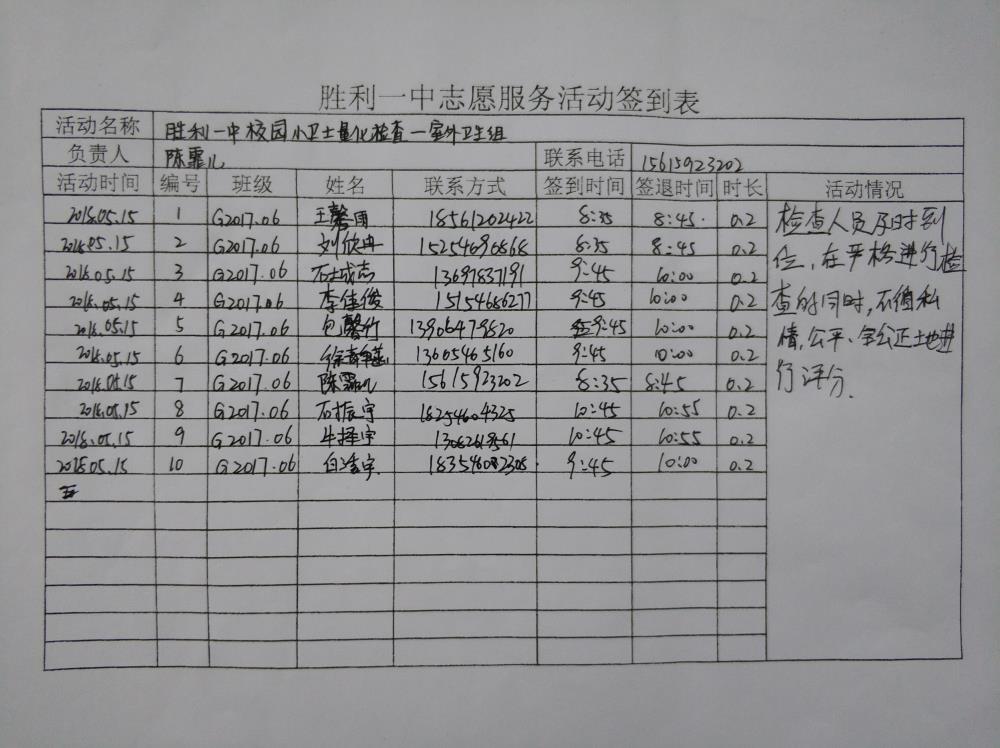 胜利一中志愿服务活动签到表
活动名称 胜利一中校园小卫士量化检查一室外卫生组
负责人 陈霏儿 联系电话 15615923202
活动时间 编号 班级 姓名 联系方式 签到时间 签退时间 时长 活动情况
2018.05.15 1 G2017.06 王馨雨 18561202422 8:35 8:45. 0.2
2018.05.15 2 G2017.06 刘欣冉 15254690868 8:35 8:45 0.2
2018.05.15 3 G2017.06 石城志 13697837191 9:45 10:00 0.2
2018.05.15 4 G2017.06 李佳俊 15154686277 9:45 10:00 0.2
2018.05.15 5 G2017.06 包馨竹 13906479820 9:45 10:00 0.2
2018.05.15 6 G2017.06 13605465160 9:45 10:00 0.2
2018.05.15 7 G2017.06 陈霏儿 15615923202 8:35 8:45 0.2
2018.05.15 8 G2017.06 石振宇 18254604325 10:45 10:55 0.2
2018.05.15 9 G2017.06 牛择宇 10:45 10:55 0.2
2018.05.15 10 G2017.06 9:45 10:00 0.2
五
检查人员及时到
位,在严格进行检
查的同时,不徇私
情,公平、公正地进
行评分.